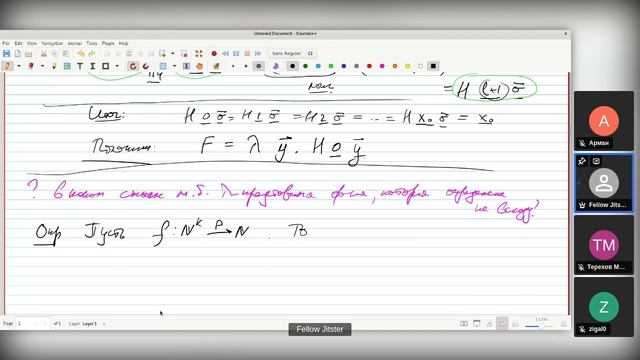 Unsaved Document - Xournal++
File Edit View Navigation Journal Tools Plugin Help
Sans Regular 12
= H (l+1) σ̅
Итог: H 0 σ̅ = H 1 σ̅ = H 2 σ̅ = ... = H x₀ σ̅ = x₀
Положим: F = λ y⃗ . H 0 y⃗
? В каком смысле м.б. λ представима ф-ия, которая определена
не всюду?
Опр Пусть f : N^k →^p N . То
Page 1 of 1 Layer Layer 1
Fellow Jitster
A
Арман
Fellow Jits...
TM
Терехов М...
Z
zigal0